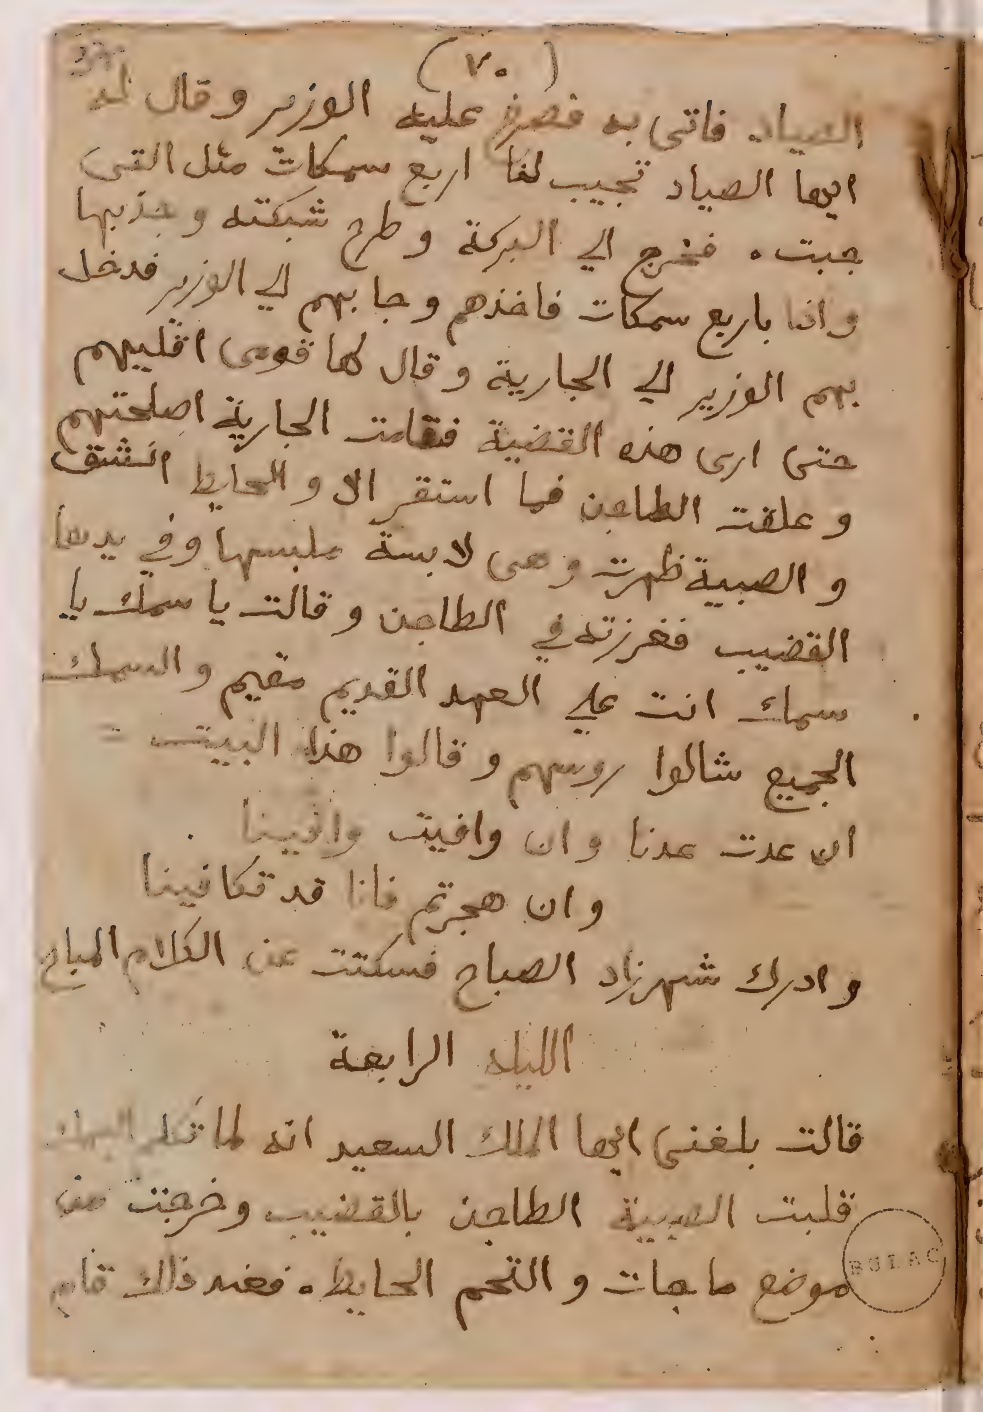 (٧٠)
الصياد فاتى به فصرخ عليه الوزير وقال له
ايها الصياد تجيب لنا اربع سمكات مثل التى
جبت ٠ فخرج الي البركة وطرح شبكته وجذبها
واذا باربع سمكات فاخذهم وجا بهم الي الوزير فدخل
بهم الوزير الي الجارية وقال لها قومى اقليهم
حتى ارى هذه القضية فقامت الجارية اصلحتهم
وعلقت الطاجن فما استقر الا والحايط انشق
والصبية ظهرت وهى لابسة ملبسها وفي يدها
القضيب فغرزته في الطاجن وقالت يا سمك يا
سمك انت علي العهد القديم مقيم والسمك
الجميع شالوا روسهم وقالوا هذا البيت
ان عدت عدنا وان وافيت وافينا
وان هجرتم فانا قد تكافينا
وادرك شهرزاد الصباح فسكتت عن الكلام المباح
الليله الرابعة
قالت بلغنى ايها الملك السعيد انه لما تكلم السمك
قلبت الصبية الطاجن بالقضيب وخرجت من
موضع ما جات والتحم الحايط ٠ فعند ذلك قام
BULAC